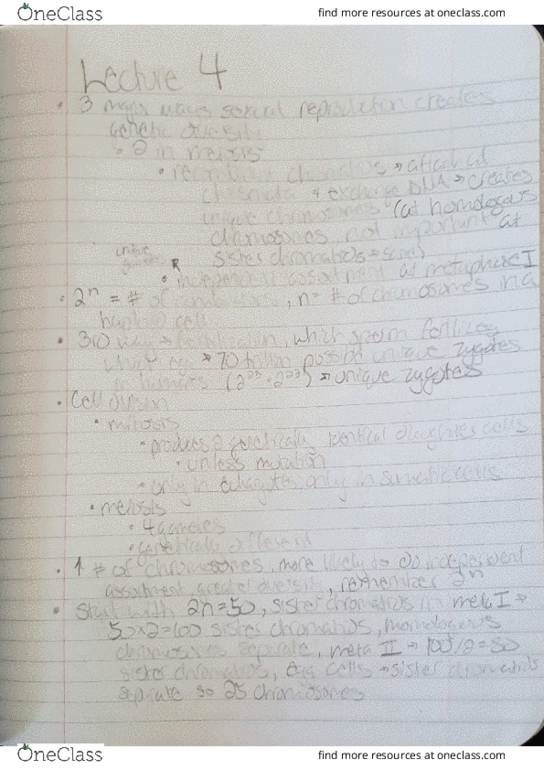 OneClass find more resources at oneclass.com
Lecture 4
• 3 ways sexual reproduction creates
genetic diversity
• 2 in meiosis
• chromosomes → attach at
chiasmata & exchange DNA → creates
unique chromosomes (at homologous
chromosomes, not important at
sister chromatids = same)
unique
gametes
• independent assortment at metaphase I
• 2ⁿ = # of combinations, n = # of chromosomes in a
haploid cell
• 3rd way → fertilization, which sperm fertilizes
which egg → 70 trillion possible unique zygotes
in humans (2²³ · 2²³) → unique zygotes
• Cell division
• mitosis
• produces 2 genetically identical daughter cells
• unless mutation
• only in eukaryotes, only in somatic cells
• meiosis
• 4 gametes
• genetically different
• ↑ # of chromosomes, more likely to do independent
assortment, greater diversity, remember 2ⁿ
• Start with 2n=50, sister chromatids in meta I →
50×2=100 sister chromatids, homologous
chromosomes separate, meta II → 100/2=50
sister chromatids, egg cells → sister chromatids
separate so 25 chromosomes
OneClass find more resources at oneclass.com